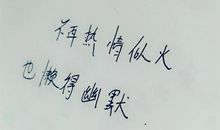 不再热情似火
也懒得幽默